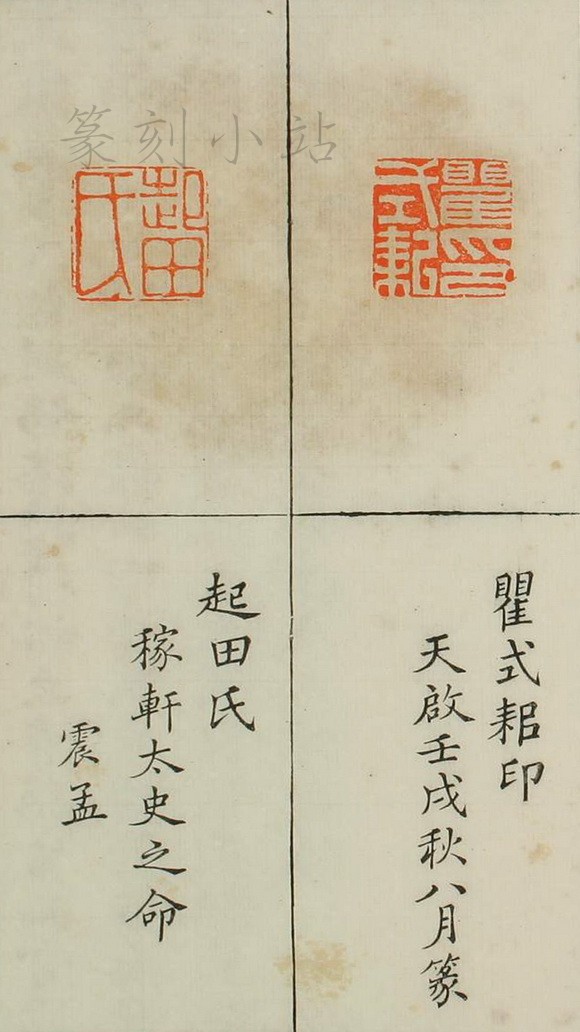 篆刻小站
瞿式耜印
起田氏
瞿式耜印
天啟壬戌秋八月篆
起田氏
稼軒太史之命
震孟